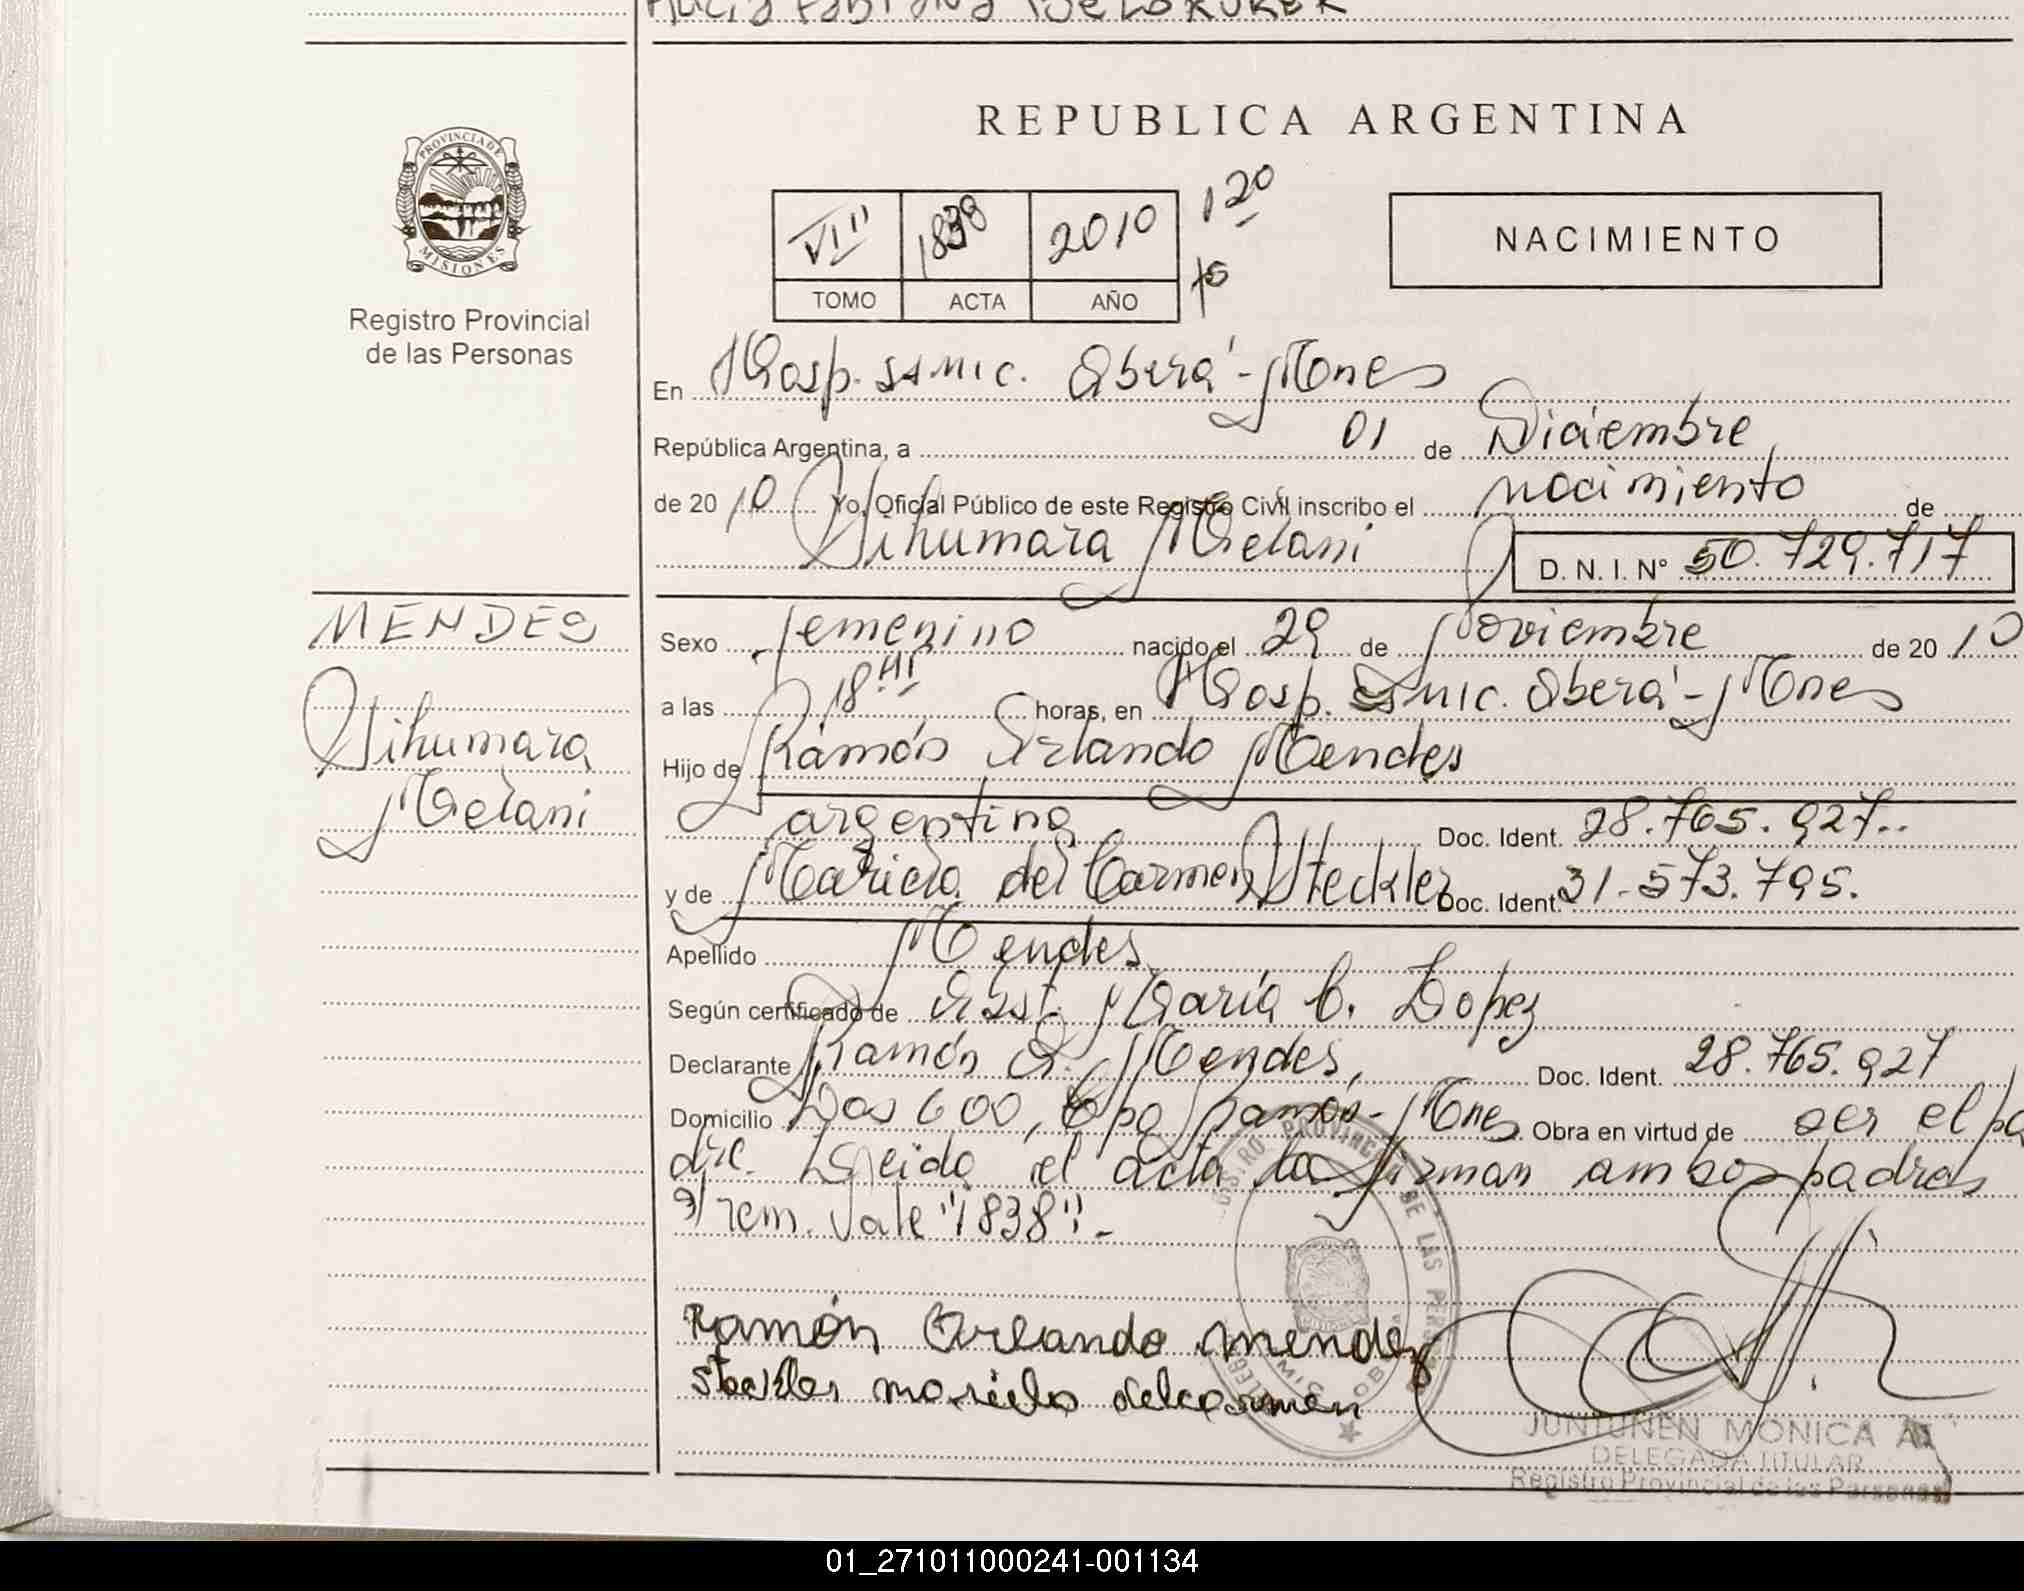 REPUBLICA ARGENTINA
PROVINCIA DE
MISIONES
Registro Provincial
de las Personas
1838 2010 120
TOMO ACTA AÑO
NACIMIENTO
En Hosp. SAMIC. Oberá - Mnes
República Argentina, a 01 de Diciembre
de 2010 Yo, Oficial Público de este Registro Civil inscribo el nacimiento de
Sihumara Melani D. N. I. Nº 50.729.717
MENDES
Sihumara
Melani
Sexo femenino nacido el 29 de Noviembre de 2010
a las 18 horas, en Hosp. SAMIC. Oberá - Mnes
Hijo de Ramón Orlando Mendes
argentina Doc. Ident. 28.765.927..
y de Mariela del Carmen Steckler Doc. Ident. 31.573.795.
Apellido Mendes
Según certificado de Obst. María C. Lopez
Declarante Ramón O. Mendes, Doc. Ident. 28.765.927
Domicilio 600, Ramón - Mnes. Obra en virtud de ser el pa
dre. Leida el acta la firman ambos padres
s/ rem. Vale "1838".-
Ramón Orlando mendez
Steckler mariela del carmen
REGISTRO PROVINCIAL DE LAS PERSONAS
JUNTUNEN MONICA A.
DELEGADA TITULAR
Registro Provincial de las Personas
01_271011000241-001134